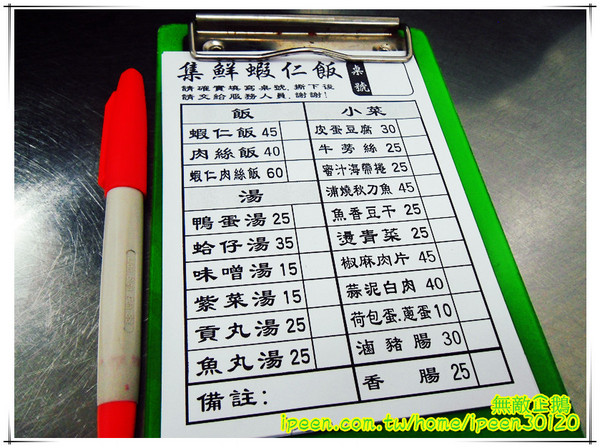 集鮮蝦仁飯
桌號
請確實填寫桌號，撕下後
請交給服務人員，謝謝！
飯
蝦仁飯 45
肉絲飯 40
蝦仁肉絲飯 60
湯
鴨蛋湯 25
蛤仔湯 35
味噌湯 15
紫菜湯 15
貢丸湯 25
魚丸湯 25
備註：
小菜
皮蛋豆腐 30
牛蒡絲 25
蜜汁海帶捲 25
浦燒秋刀魚 45
魚香豆干 25
燙青菜 25
椒麻肉片 45
蒜泥白肉 40
荷包蛋.蔥蛋 10
滷豬腸 30
香腸 25
無敵企鵝
ipeen.com.tw/home/ipeen30120